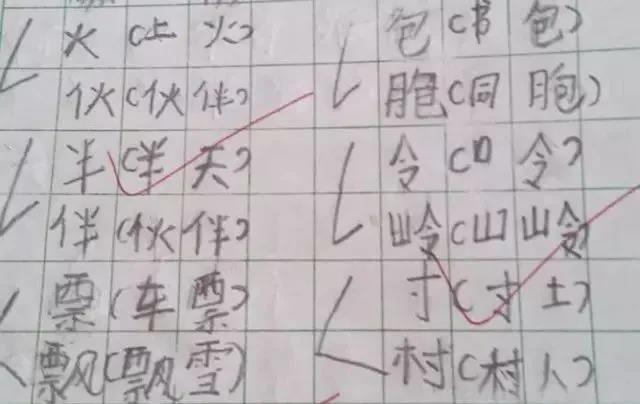 火(上火)
伙(伙伴)
半(半天)
伴(伙伴)
票(车票)
飘(飘雪)
包(书包)
胞(同胞)
令(口令)
岭(山岭)
寸(寸土)
村(村人)